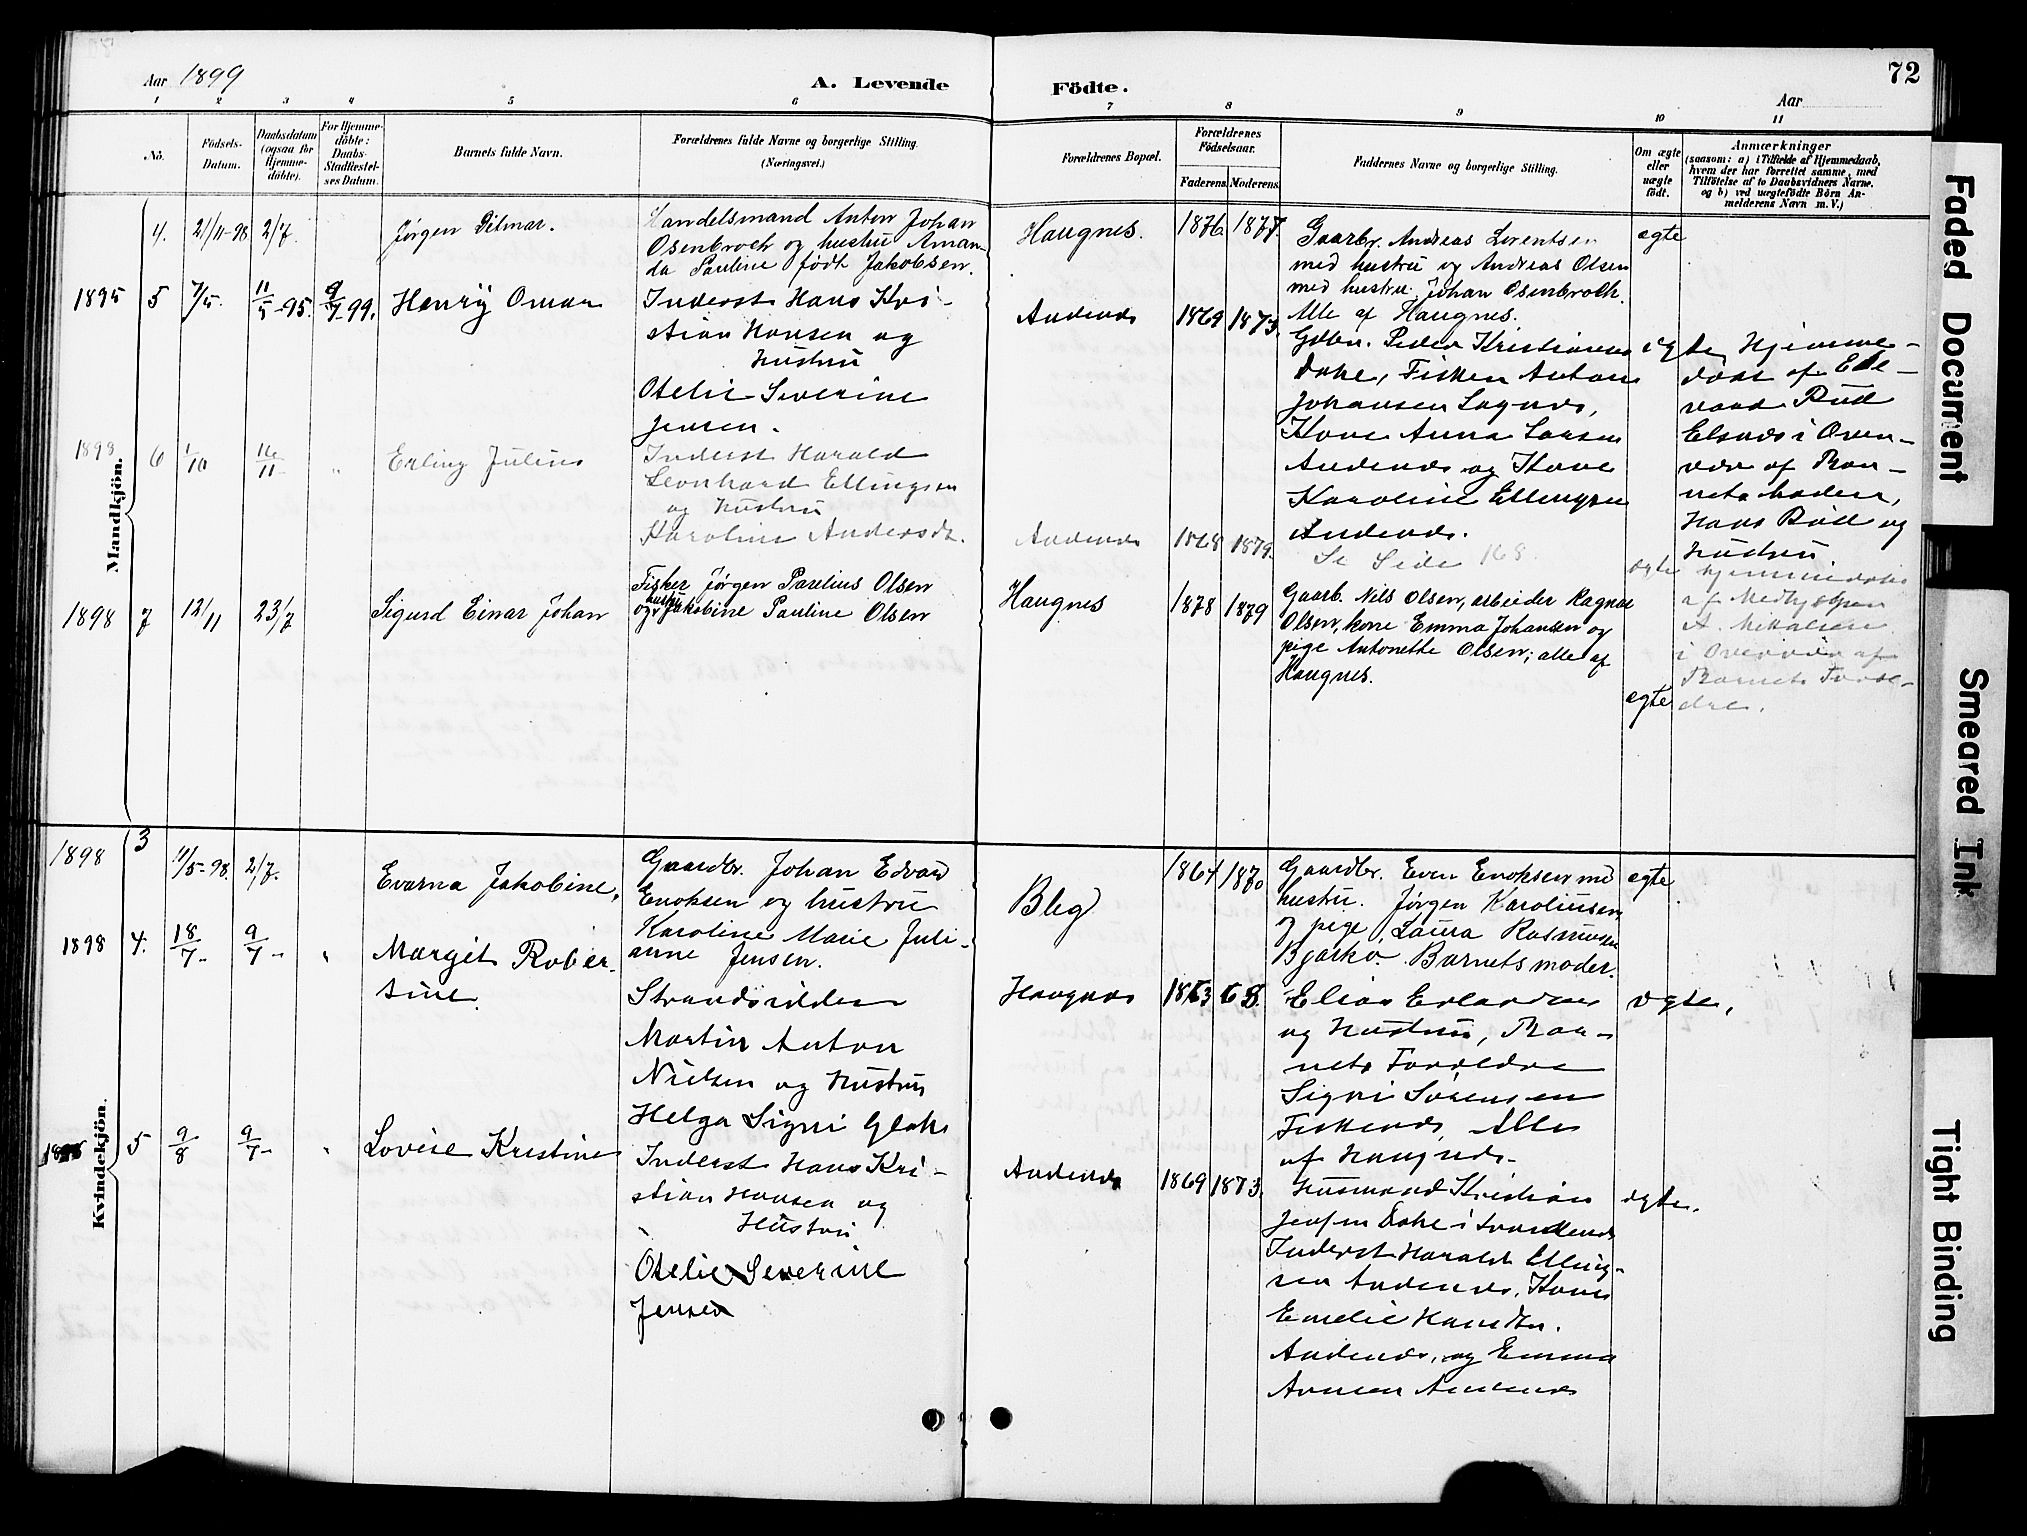 Aar 1899
A. Levende Födte.
72
Aar
1 2 3 4 5 6 7 8 9 10 11
No.
Födsels-
Datum.
Daabsdatum
(ogsaa for
Hjemme-
döbte).
For Hjemme-
döbte:
Daabs-
Stadfæstel-
ses Datum.
Barnets fulde Navn.
Forældrenes fulde Navne og borgerlige Stilling.
(Næringsvei.)
Forældrenes Bopæl.
Forældrenes
Födselsaar.
Faderens. Moderens.
Faddernes Navne og borgerlige Stilling.
Om ægte
eller
uægte
födt.
Anmærkninger
(saasom: a) i Tilfælde af Hjemmedaab,
hvem der har forrettet samme, med
Tilföielse af to Daabsvidners Navne.
og b) ved uægtefödte Börn An-
melderens Navn m. V.)
Mandkjön.
4. 21/11-98 2/7.
Jørgen Dilmar.
Handelsmand Anton Johan
Osenbroch og hustru Aman-
da Pauline født Jakobsen.
Haugnes.
1876. 1877.
Gaarbr. Andreas Lorentsen
med hustru og Andreas Olsen
med hustru. Johan Osenbroch.
Alle af Haugnes.
ægte
1895 5 7/5. 11/5-95. 9/7-99.
Henrÿ Omar
Inderst Hans Kri-
stian Hansen og
Hustru
Otelie Severine
Jensen.
Andenæs
1869 1873.
Gdbr. Peder Kristiansen
Dahe, Fisker Anton
Johansen
Kone Anna Larsen
Andenæs og Kone
Karoline Ellingsen
Andenæs.
ægte
Hjemme-
døbt af
Røll
i Over-
vær af Bar-
nets
Hans Røll og
Hustru
1898 6 1/10 16/11 "
Erling Julius
Inderst Harald
Leonhard Ellingsen
og Hustru
Karoline Andersdt.
Andenæs
1868 1879.
Se Side 168.
ægte
Hjemmedøbt
af
A. Mikalsen
i Overvær af
Barnets Foræl-
dre.
1898 7 12/11 23/7
Sigurd Einar Johan
Fisker Jørgen Parelius Olsen
og hustru Jakobine Pauline Olsen
Haugnes
1878 1879
Gaarb. Nils Olsen, arbeider Ragnar
Olsen, kone Emma Johansen og
pige Antonette Olsen; alle af
Haugnes.
ægte
Kvindekjön.
1898 3 11/5-98. 2/7.
Evarna Jakobine.
Gaardbr. Johan Edvard
Enoksen og hustru
Karoline Marie Juli-
anne Jensen.
Bleg
1864 1870
Gaardbr. Even Enoksen md
hustru. Jørgen Karoliusen
og pige Laura Rasmussen
Bjarkø. Barnets moder.
ægte
1898 4. 18/7- 9/7- "
Margit Rober-
tine.
Strandsidder
Martin Anton
Nielsen og Hustru
Helga Signi
Haugnes
1863 68.
Elias
og Hustru, Bar-
nets Forældre
Signi Sørensen
Alle
af Haugnæs.
ægte.
5 9/8 9/7- "
Lovise Kristine
Inderst Hans Kri-
stian Hansen og
Hustru
Otelie Severine
Jensen
Andenæs
1869 1873.
Husmand Kristian
Inderst Harald Elling-
sen Andenæs, Kone
Emelie
Andenæs, og Emma
Andenæs
ægte.
Faded Document
Smeared Ink
Tight Binding